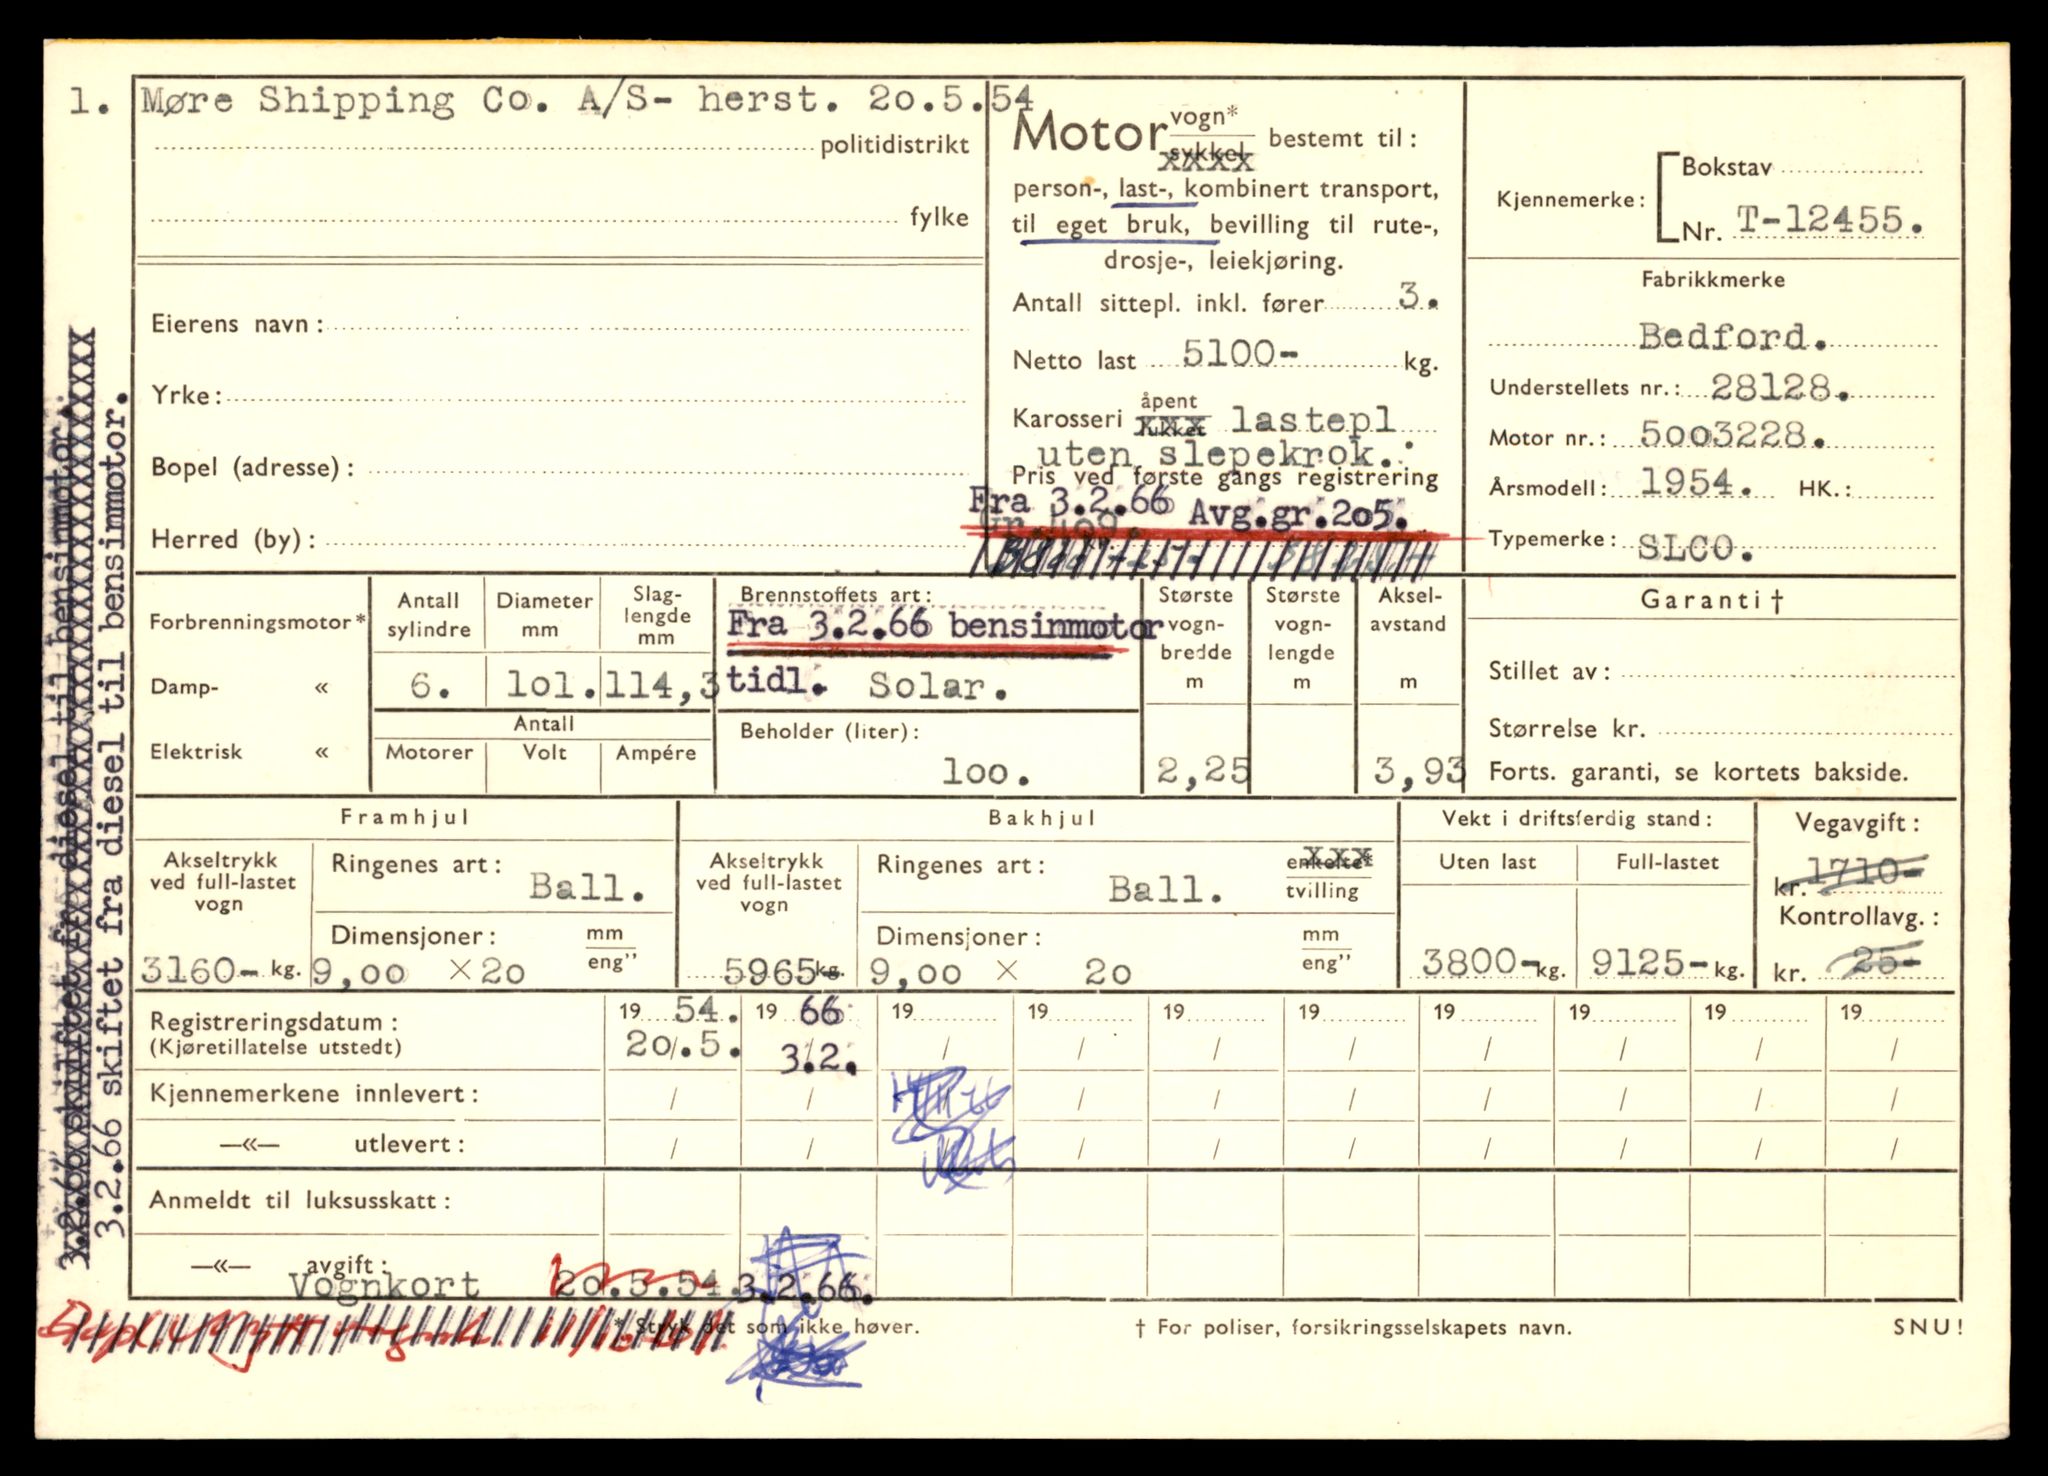 1. Møre Shipping Co. A/S- herst. 20.5.54
politidistrikt
fylke
Eierens navn:
Yrke:
Bopel (adresse):
Herred (by):
Motor vogn* sykkel bestemt til:
xxxx
person-, last-, kombinert transport,
til eget bruk, bevilling til rute-,
drosje-, leiekjøring.
Antall sittepl. inkl. fører 3.
Netto last 5100- kg.
Karosseri åpent lukket lastepl
xxx
uten slepekrok.
Pris ved første gangs registrering
Fra 3.2.66 Avg.gr.205.
Kjennemerke: Bokstav
Nr. T-12455.
Fabrikkmerke
Bedford.
Understellets nr.: 28128.
Motor nr.: 5003228.
Årsmodell: 1954. HK.:
Typemerke: SLCO.
3.2.66 skiftet fra diesel til bensinmotor.
3.2.66 skiftet fra diesel til bensinmotor.
Forbrenningsmotor*
Damp- «
Elektrisk «
Antall sylindre
6.
Diameter mm
101.
Slaglengde mm
114,3
Antall
Motorer Volt Ampére
Brennstoffets art:
Fra 3.2.66 bensinmotor
tidl. Solar.
Beholder (liter):
100.
Største vognbredde m
2,25
Største vognlengde m
Akselavstand m
3,93
Garanti †
Stillet av:
Størrelse kr.
Forts. garanti, se kortets bakside.
Framhjul
Akseltrykk ved full-lastet vogn
3160- kg.
Ringenes art: Ball.
Dimensjoner: mm eng"
9,00 × 20
Bakhjul
Akseltrykk ved full-lastet vogn
5965- kg.
Ringenes art: Ball.
xxx
enkelte* tvilling
Dimensjoner: mm eng"
9,00 × 20
Vekt i driftsferdig stand:
Uten last Full-lastet
3800- kg. 9125- kg.
Vegavgift:
kr. 1710-
Kontrollavg.:
kr. 25-
Registreringsdatum: 19 54. 19 66 19 19 19 19 19 19 19 19
(Kjøretillatelse utstedt) 20/.5. 3/2. / / / / / / / /
Kjennemerkene innlevert: / / / / / / / / /
—«— utlevert: / / / / / / / / /
Anmeldt til luksusskatt:
—«— avgift:
Vognkort 20.5.54. 3.2.66.
* Stryk det som ikke høver.
† For poliser, forsikringsselskapets navn.
SNU!